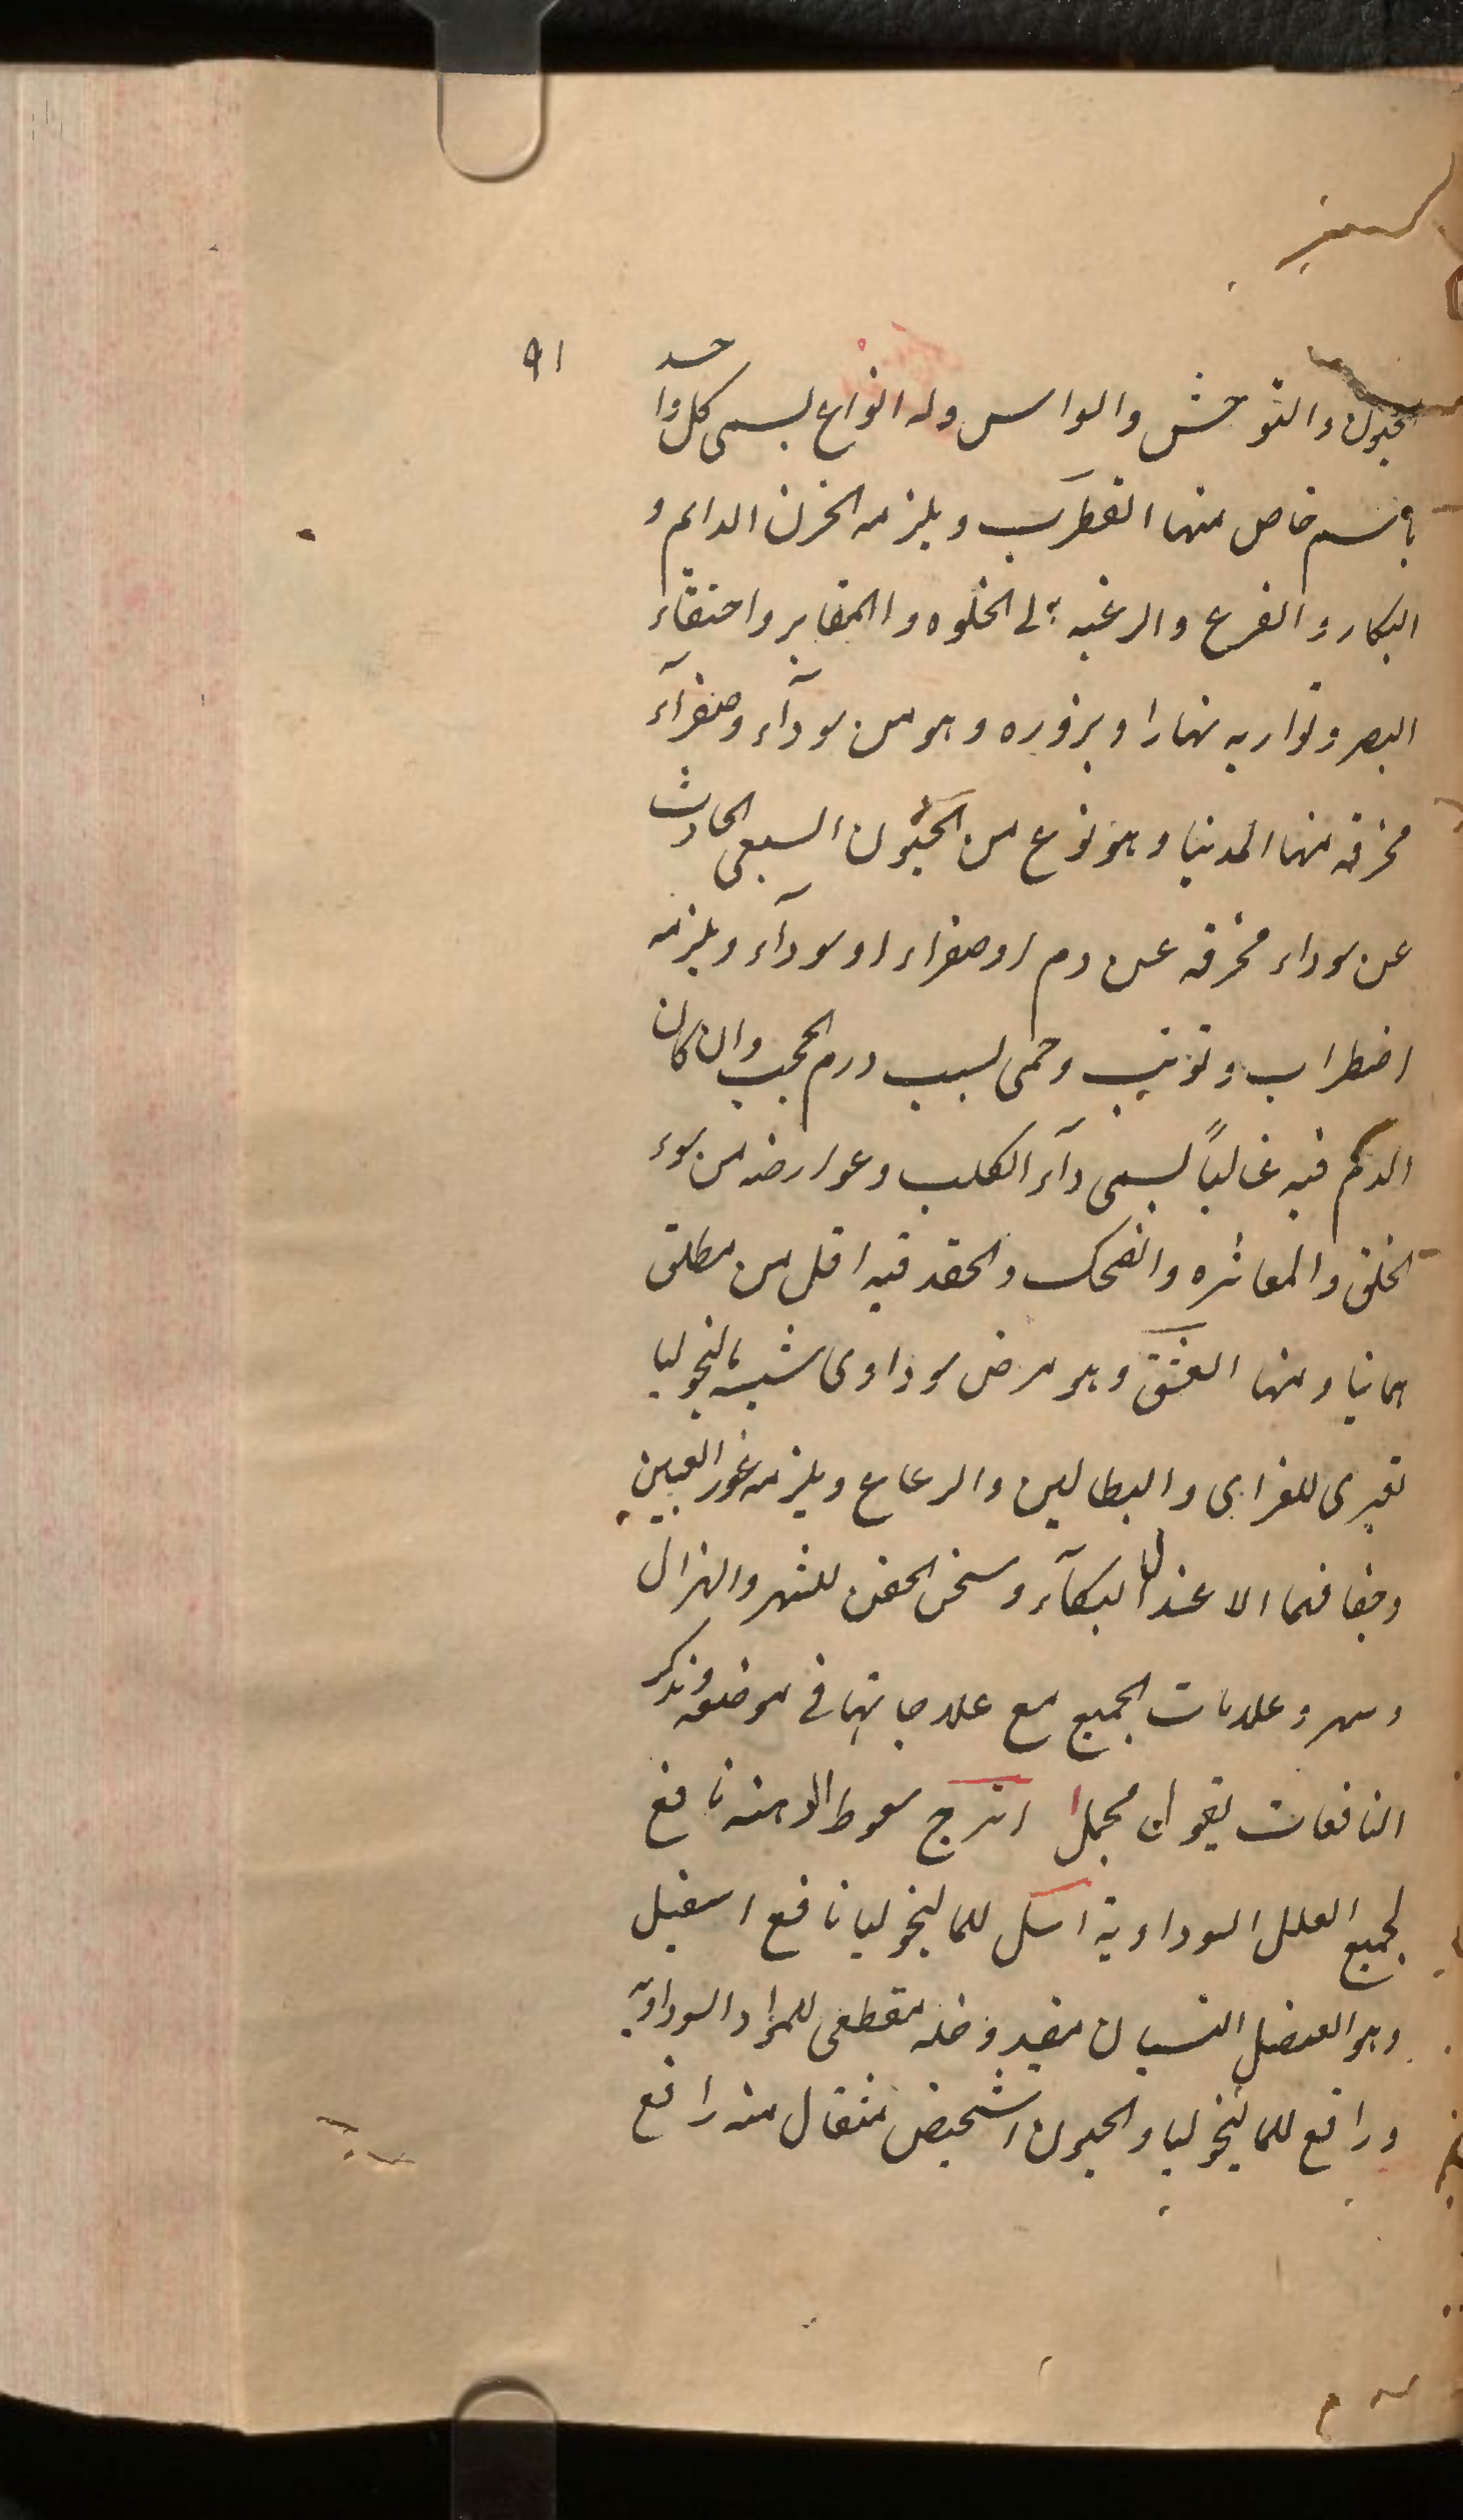 ٩١
الجنون والتوحش والواس وله انواع يسمى كل واحد
باسم خاص منها القطرب ويلزمه الحزن الدايم و
البكاء والفزع والرغبه الى الخلوه والمقابر واختفاء
البصر وتواريه نهارا وبروزه وهو من سوداء وصفراء
محرقه منها المدنيا وهو نوع من الجنون السبعى الحادث
عن سوداء محرقه عن دم او صفراء او سودآء ويلزمه
اضطراب وتوثب وحمى لسبب ورم الحجب وان كان
الدم فيه غالباً يسمى دآء الكلب وعوارضه من سوء
الخلق والمعاشره والضحك والحقد فيه اقل من مطلق
مانيا ومنها العشق وهو مرض سوداوى شبيه بالنجوليا
تعبرى للغرابى والبطالين والرعاع ويلزمه غور العين
وجفافهما الا عند البكآء وسخن الجفن للشهر والهزال
وسهر وعلامات الجميع مع علاجاتها فى موضعه ونذكر
النافعات بقول مجمل اترج سعوط الدهنه نافع
لجميع العلل السوداوية اسل للمالنجوليا نافع اسقيل
وهو العنصل النسيان مفيد وخله مقطعى للمواد السوداويه
ورافع للمالنجوليا والجنون اشخيص مثقال منه رافع